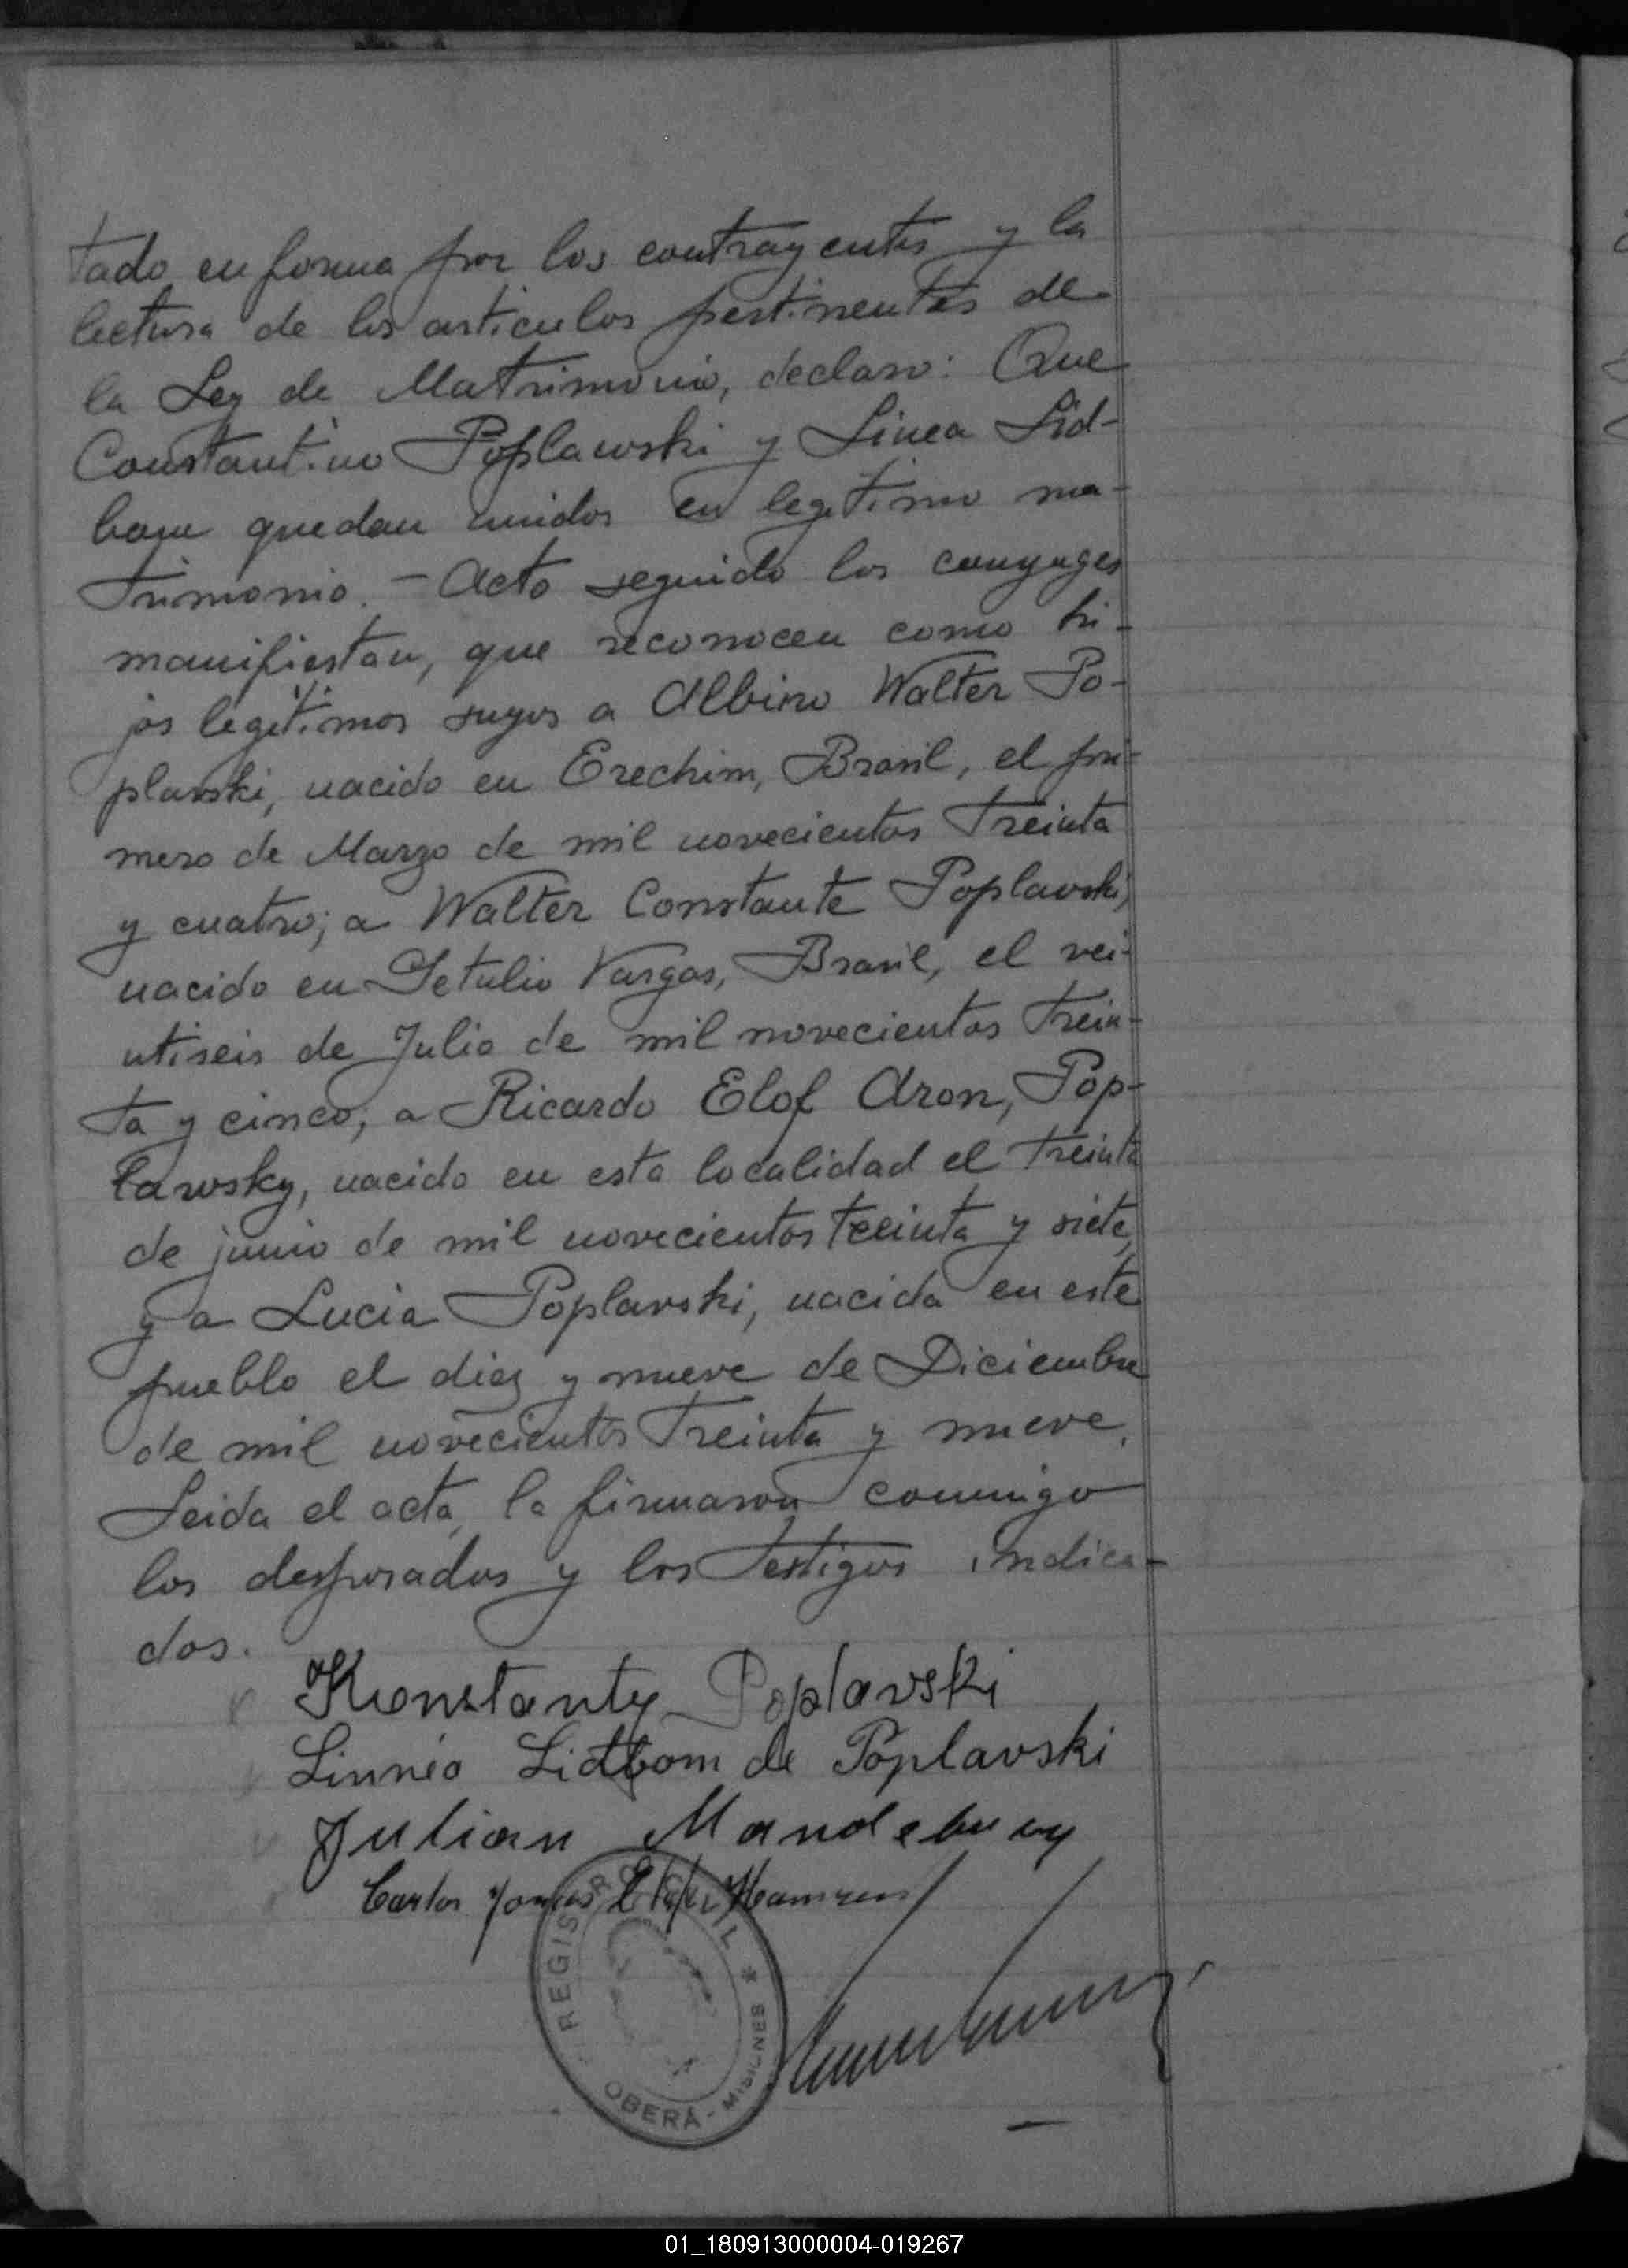 tado en forma por los contrayentes y la
lectura de los articulos pertinentes de
la Ley de Matrimonio, declaro: Que
Constantino Poplawski y Linea Lid-
bom quedan unidos en legitimo ma-
trimonio. - Acto seguido los conyuges
manifiestan, que reconocen como hi-
jos legitimos suyos a Albino Walter Po-
plavski, nacido en Erechim, Brasil, el pri-
mero de Marzo de mil novecientos treinta
y cuatro; a Walter Constante Poplavski,
nacido en Getulio Vargas, Brasil, el vei-
ntiseis de Julio de mil novecientos trein-
ta y cinco; a Ricardo Elof Aron, Pop-
lawsky, nacido en esta localidad el treinta
de junio de mil novecientos treinta y siete,
y a Lucia Poplavski, nacida en este
pueblo el diez y nueve de Diciembre
de mil novecientos treinta y nueve.
Leida el acta, la firmaron conmigo
los desposados y los testigos indica-
dos.
Konstanty Poplavski
Linnéa Lidbom de Poplavski
Julian
Carlos
REGISTRO CIVIL *
OBERÁ - MISIONES
01_180913000004-019267